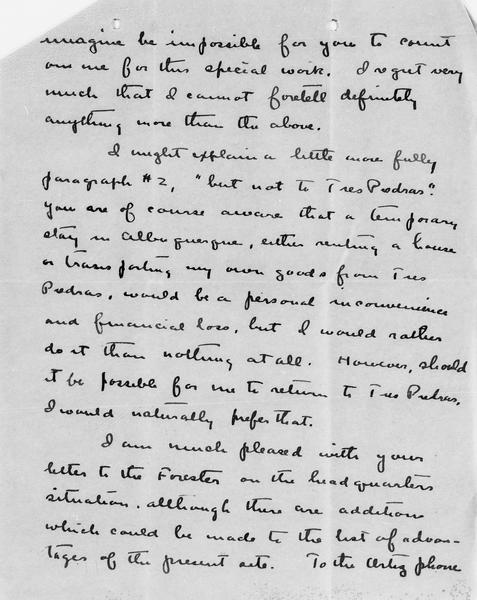 imagine be impossible for you to count
on me for this special work. I regret very
much that I cannot foretell definitely
anything more than the above.
I might explain a little more fully
paragraph #2, "but not to Tres Piedras".
You are of course aware that a temporary
stay in Albuquerque, either renting a house
or transporting my own goods from Tres
Piedras, would be a personal inconvenience
and financial loss, but I would rather
do it than nothing at all. However, should
it be possible for me to return to Tres Piedras,
I would naturally prefer that.
I am much pleased with your
letter to the Forester on the headquarters
situation, although there are additions
which could be made to the list of advan-
tages of the present site. To the phone